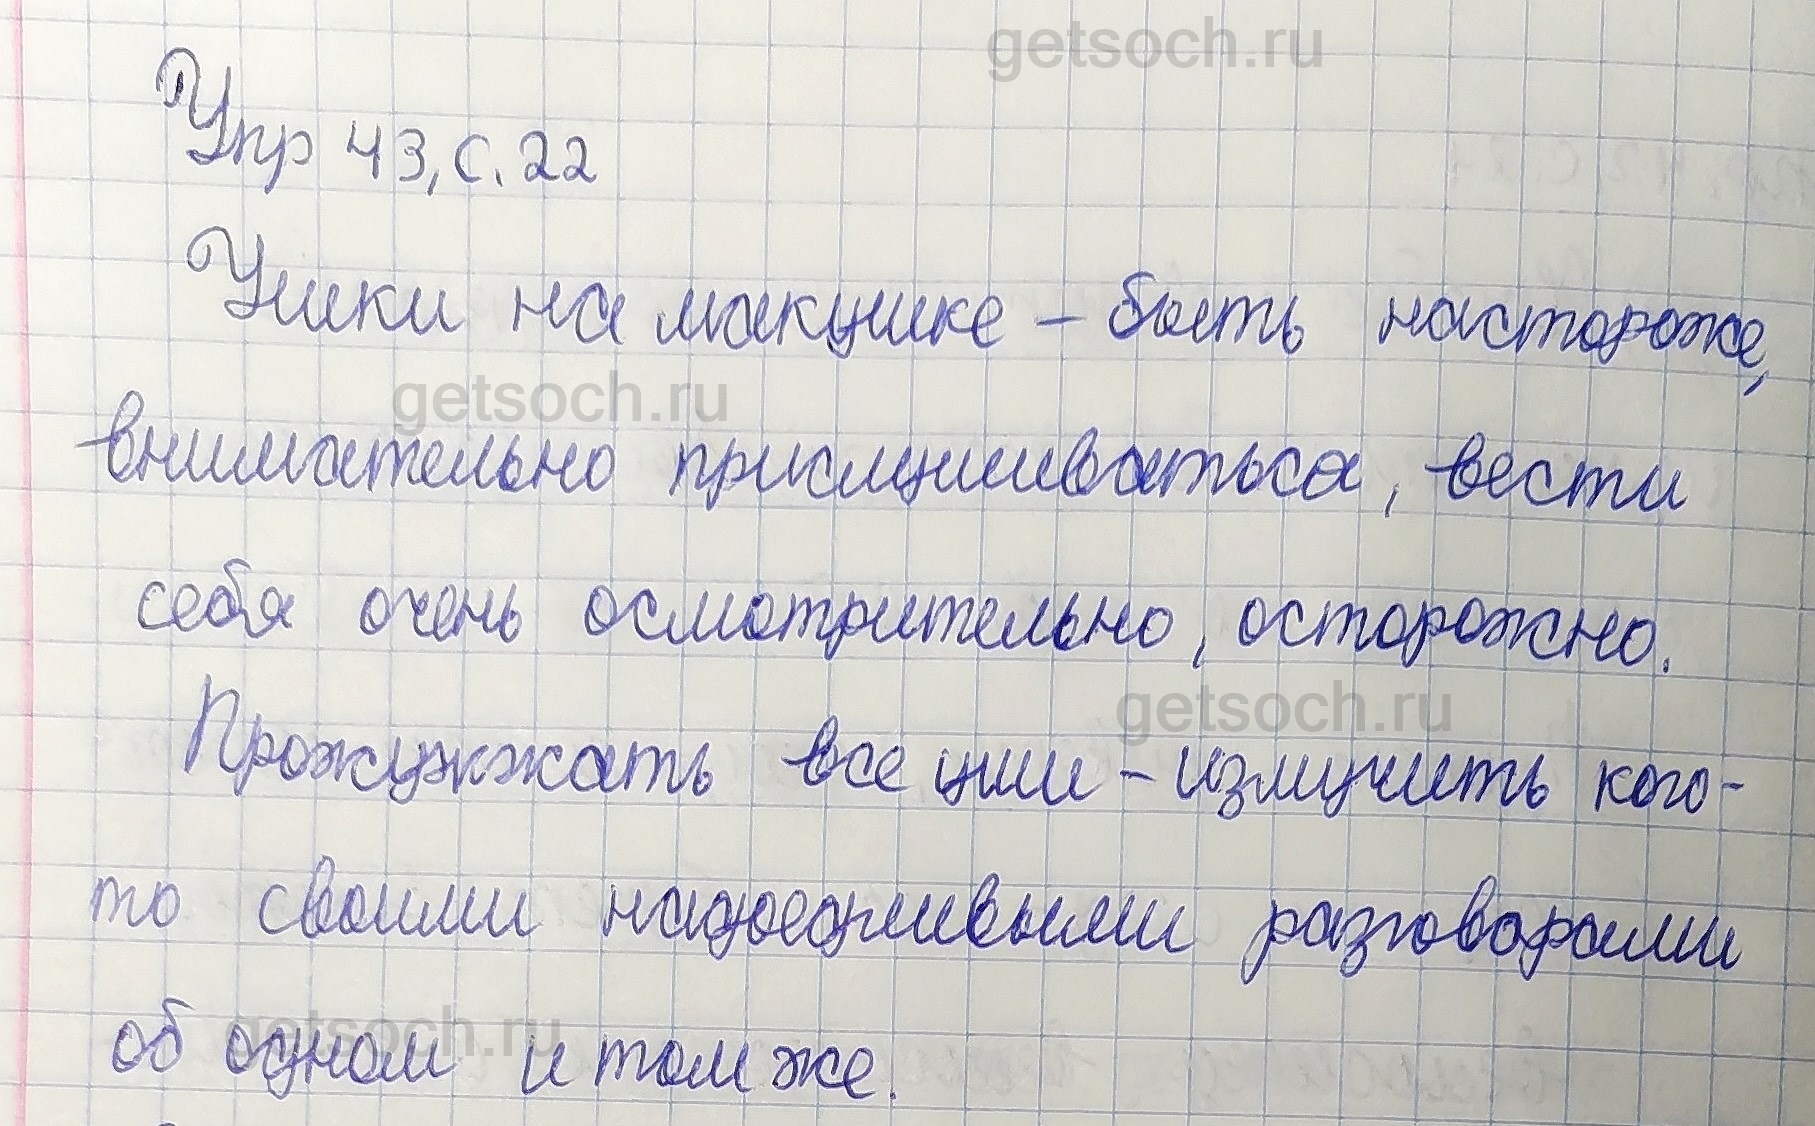 getsoch.ru
Упр 43, с. 22
Ушки на макушке – быть настороже,
getsoch.ru
внимательно прислушиваться, вести
себя очень осмотрительно, осторожно.
getsoch.ru
Прожужжать все уши – измучить кого-
то своими надоедливыми разговорами
getsoch.ru
об одном и том же.